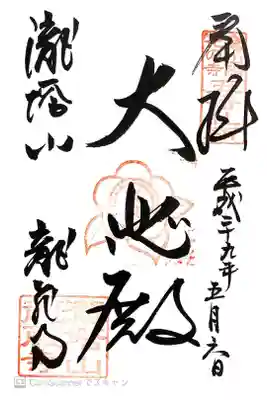 奉拝
平成二十九年五月六日
大悲殿
瀧塔山
龍蔵寺
CamScanner でスキャン